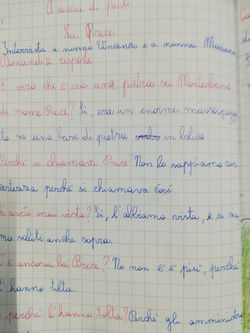 A caccia di fonti
La Preca
Intervista a nonno Vincenzo e a nonna
Domande e risposte
È vero che c'era una pietra su
di nome Preca? Sì, era un enorme masso
to su una base di pietra in bilico.
Perché si chiamava Preca? Non lo sappiamo con
certezza perché si chiamava così
L'avete mai vista? Sì, l'abbiamo vista, e ci sia
mo saliti anche sopra.
C'è ancora la Preca? No non c'è più, perché
l'hanno tolta.
E perché l'hanno tolta? Perché gli